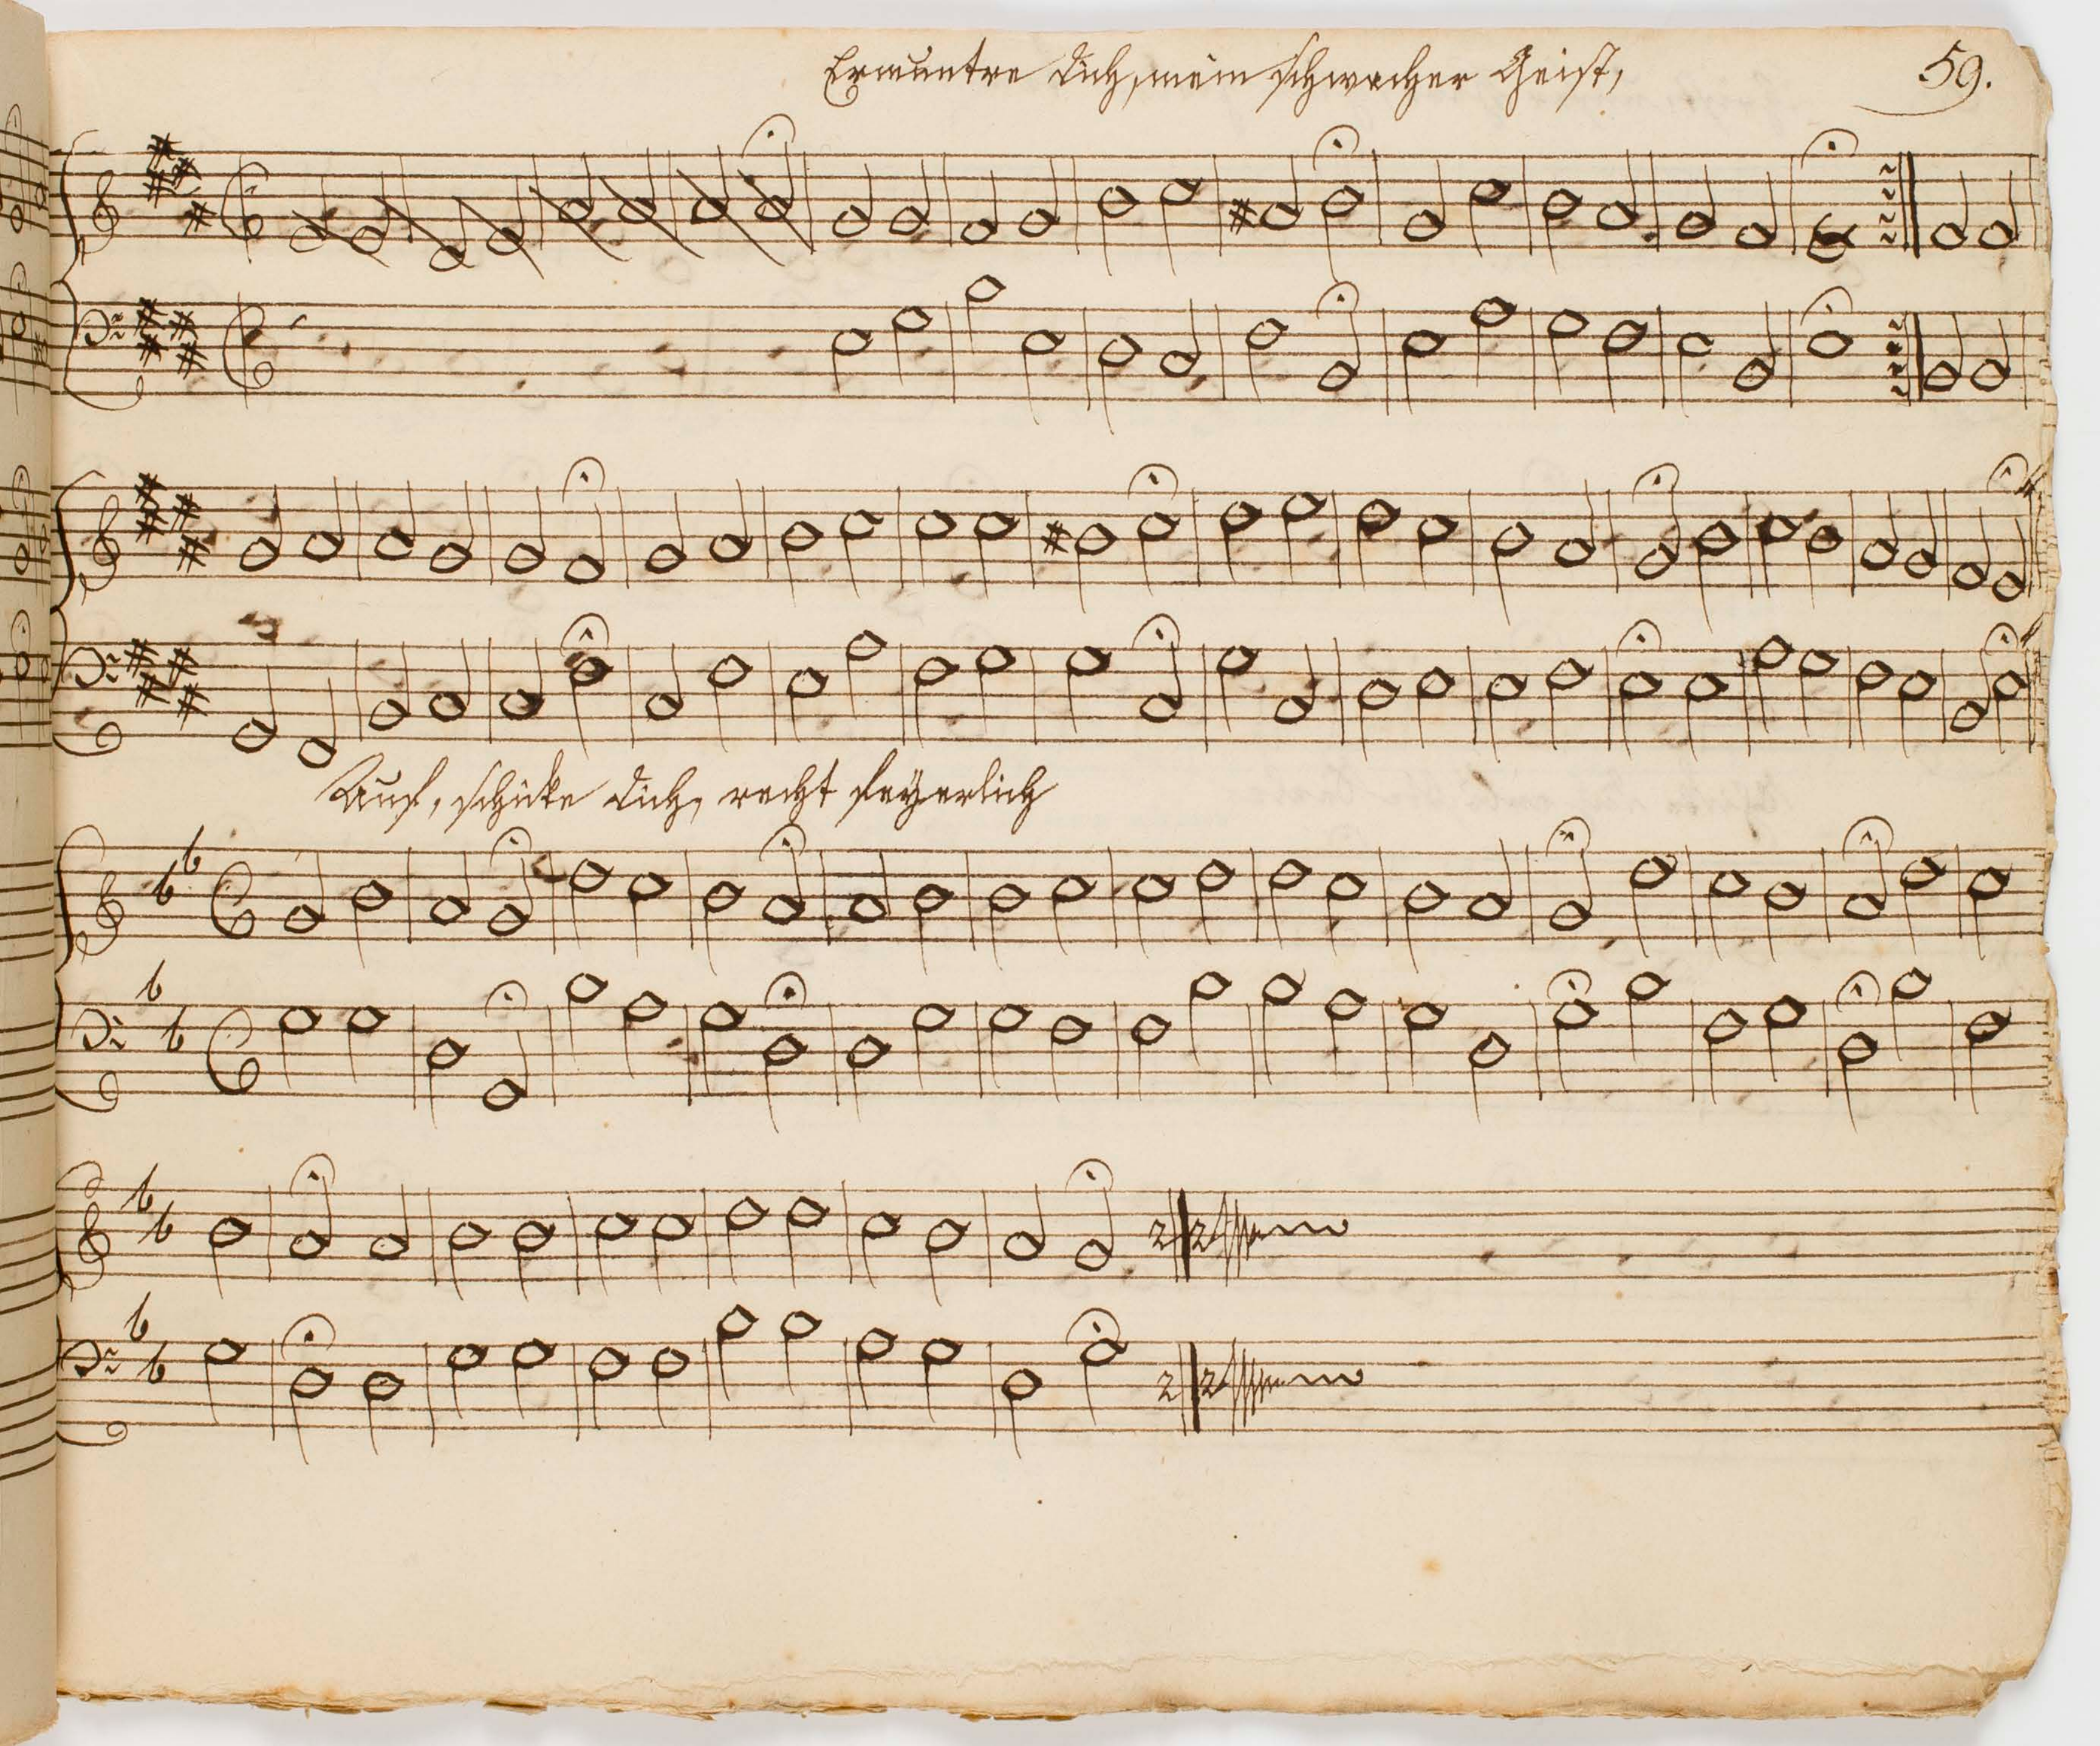 Ermuntre dich, mein schwacher Geist,
59.
Auf, schicke dich, recht feyerlich